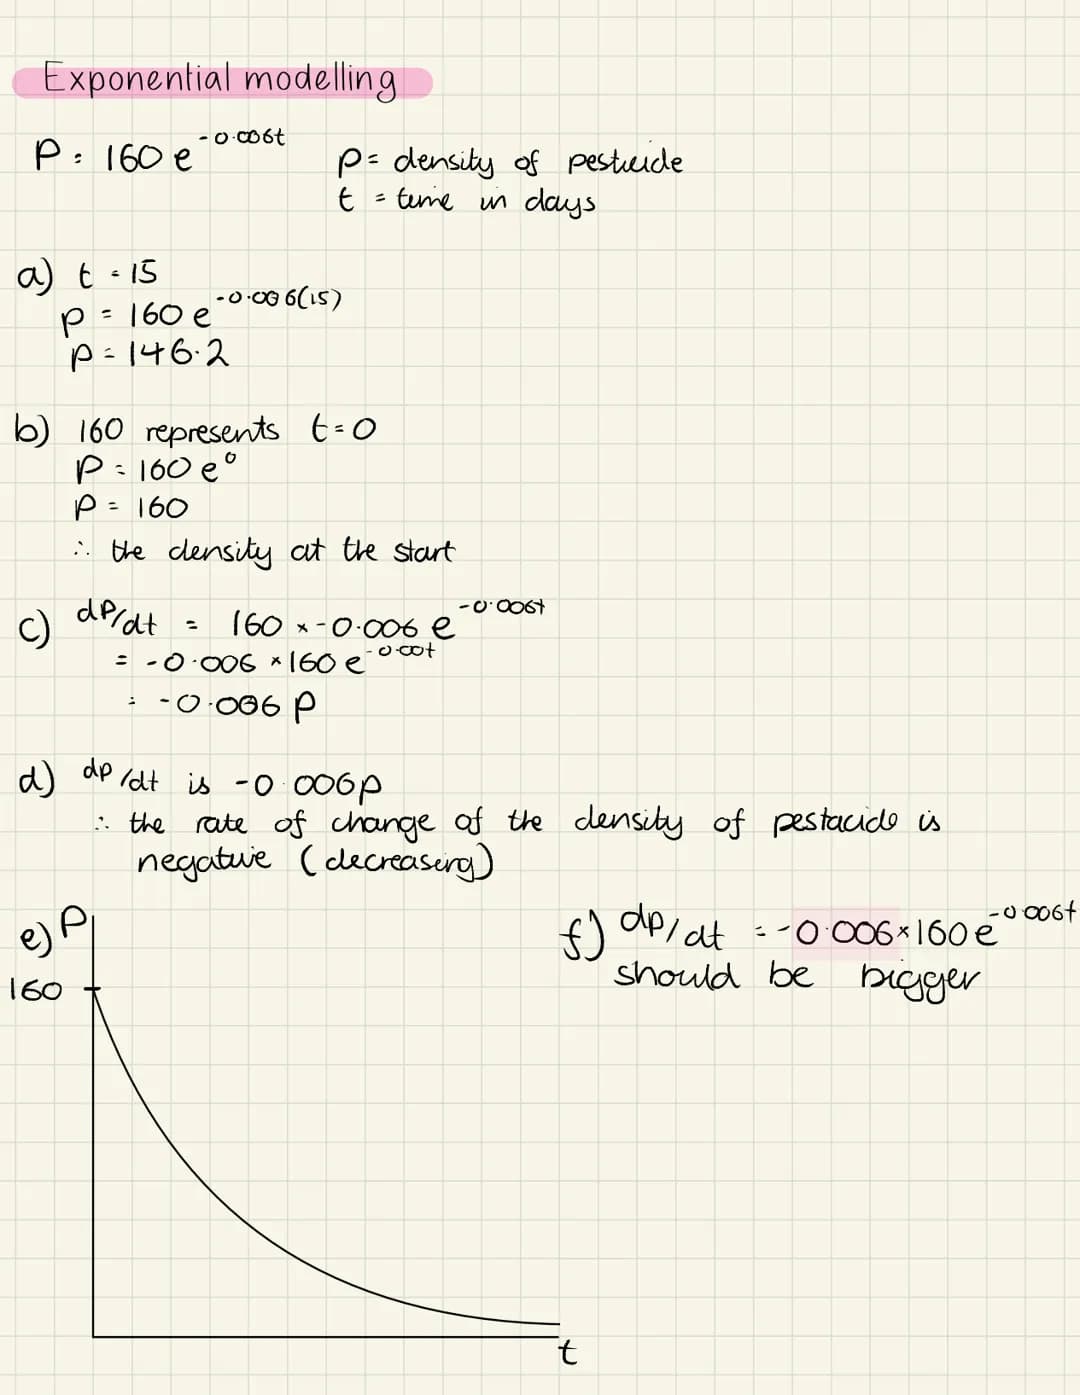 Exponential modelling
P = 160 e^-0.006t
p = density of pesticide
t = time in days
a) t = 15
p = 160 e^-0.006(15)
p = 146.2
b) 160 represents t = 0
P = 160 e^0
P = 160
∴ the density at the start
c) dP/dt = 160 × -0.006 e^-0.006t
= -0.006 × 160 e^-0.00t
= -0.006 P
d) dp/dt is -0.006p
∴ the rate of change of the density of pestacide is
negative (decreasing)
e) P
160
t
f) dp/dt = -0.006 × 160 e^-0.006t
should be bigger